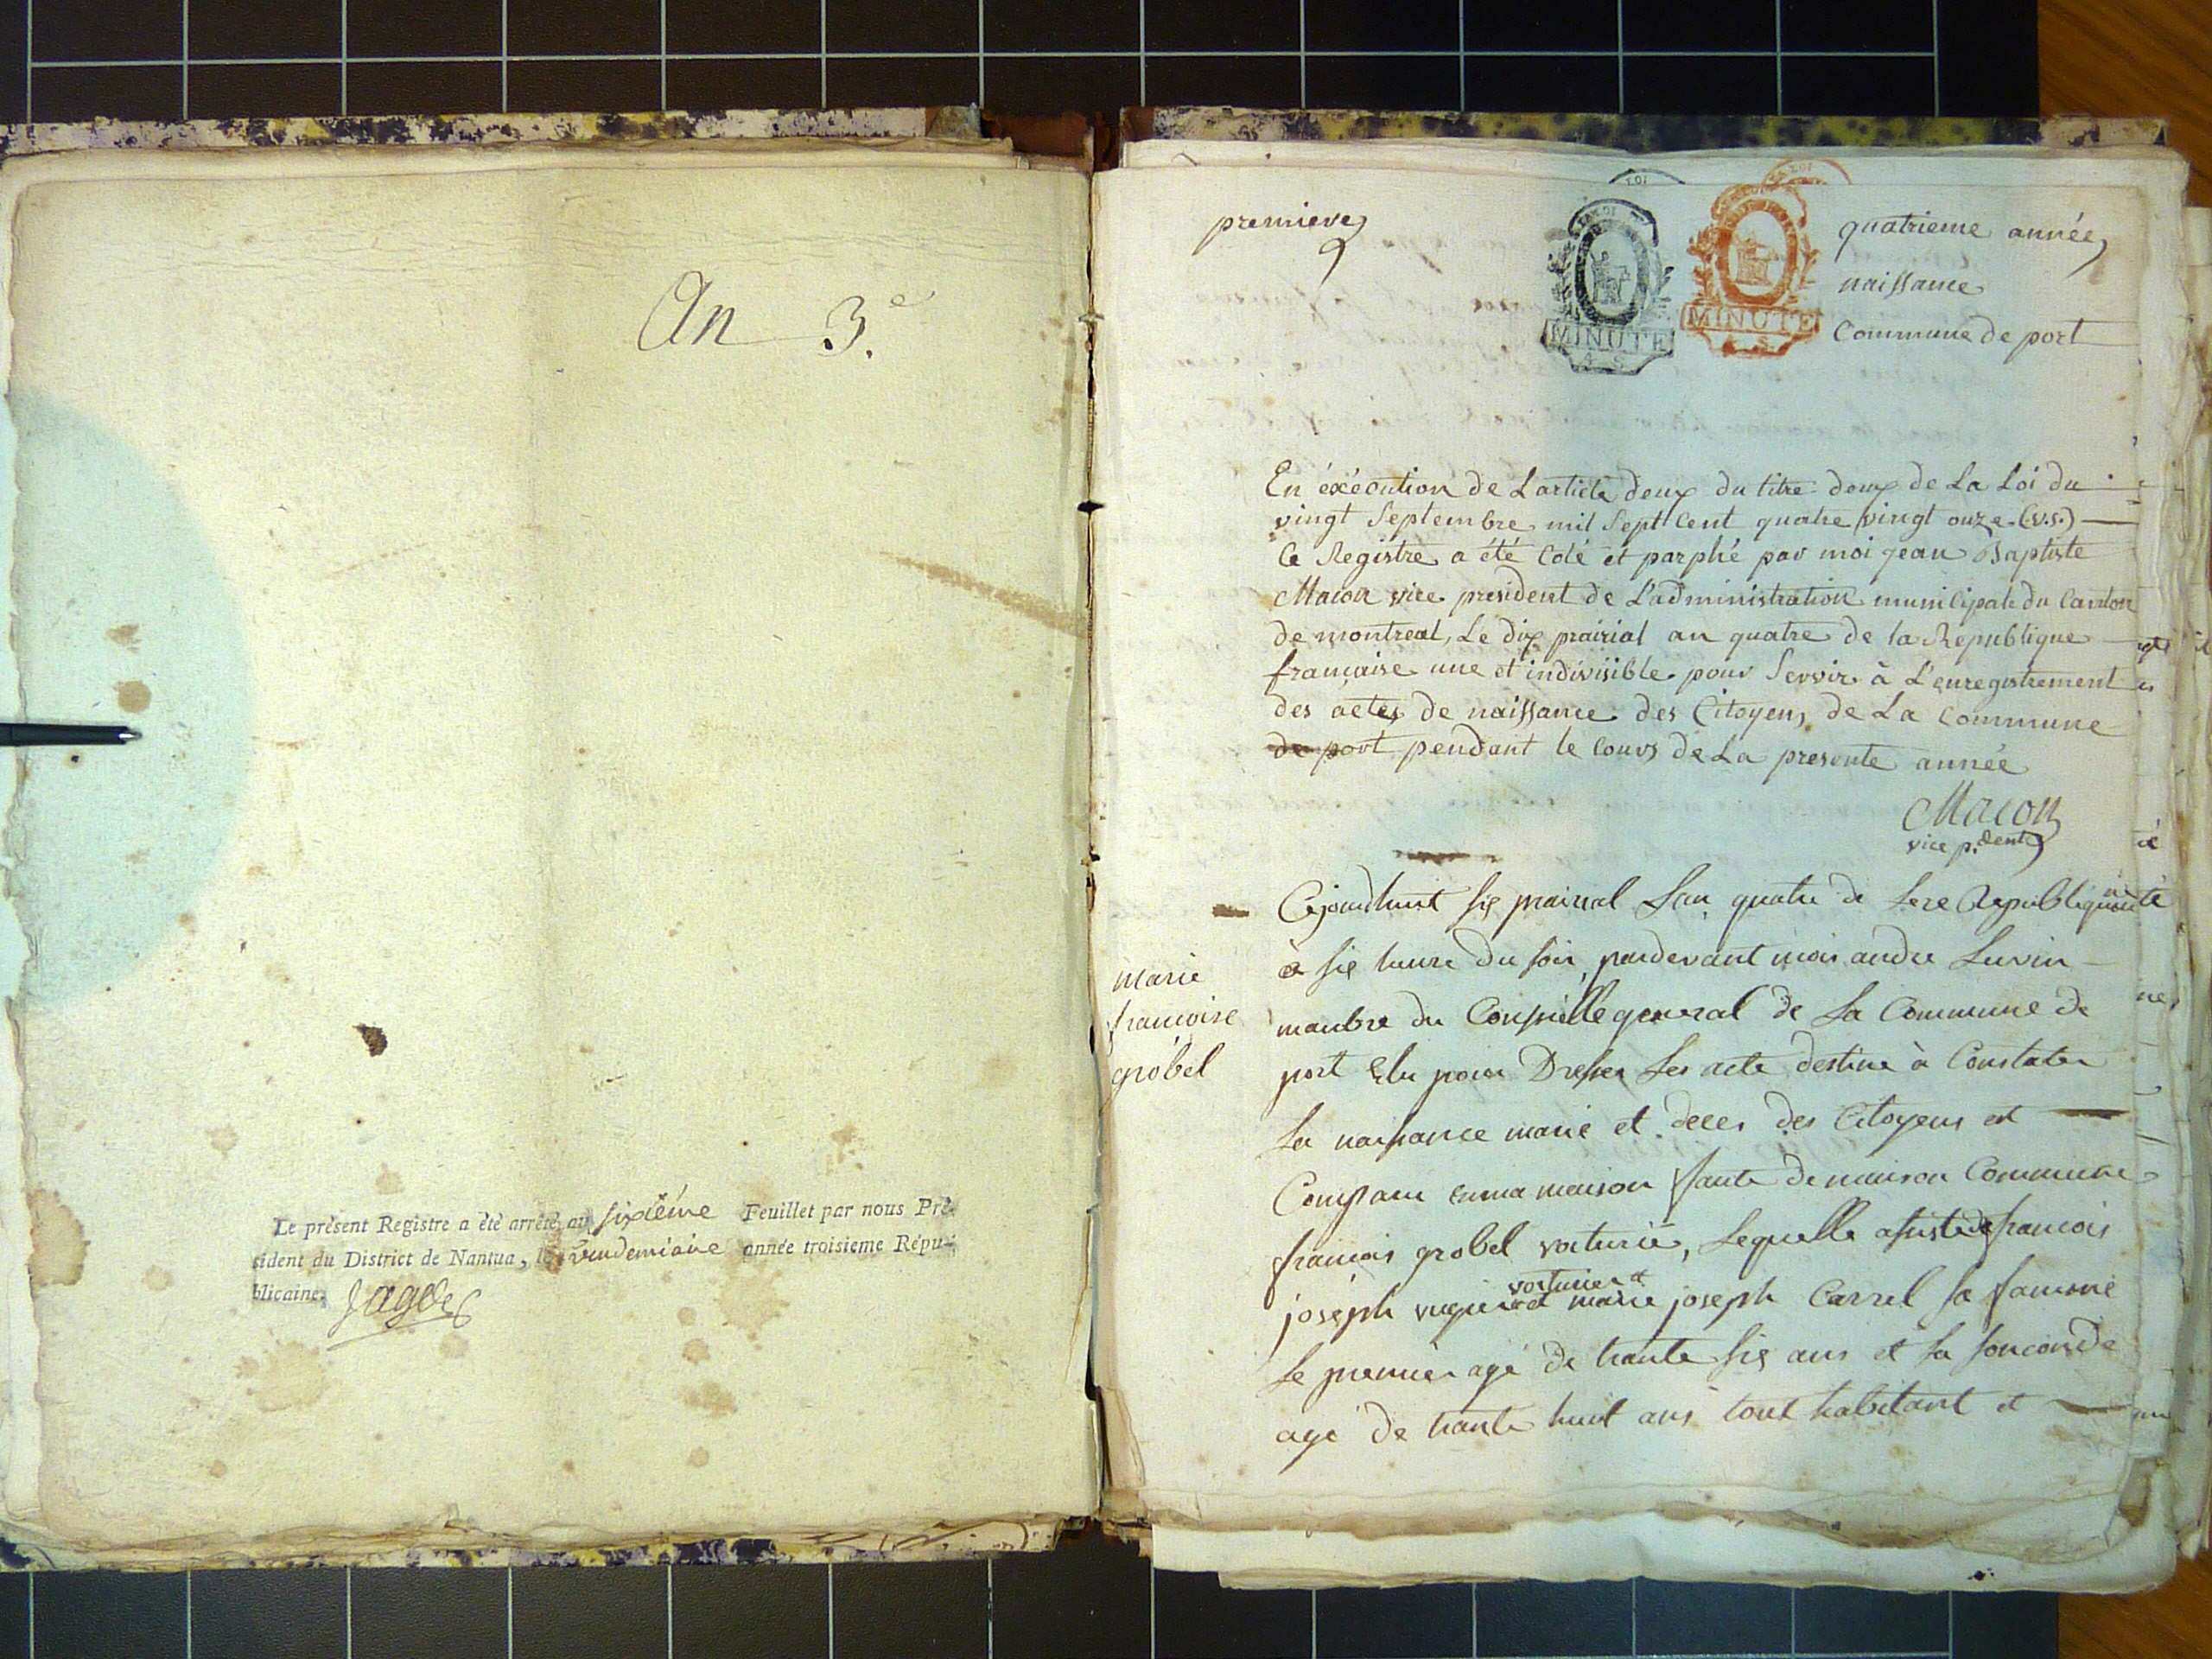 An 3.e
Le présent Registre a été arrêté au sixiéme Feuillet par nous Pré-
sident du District de Nantua, le vendemiaire année troisieme Répu-
blicaine.
premiere
quatrieme année
naissance
Commune de port
MINUTE
MINUTE
En éxécution de Larticle deux du titre deux de La Loi du
vingt Septembre mil Sept Cent quatre vingt onze (v.s.)
Ce Registre a été Coté et parphé par moi jean Baptiste
Macon vice president de L'administration municipale du Canton
de montreal, Le dix prairial an quatre de la Republique
française une et indivisible pour Servir à L'enregistrement
des actes de naissance des Citoyens de La Commune
de port pendant le Cours de La presente année
Macon
vice p.dent
marie
francoise
grobel
Cejourdhuit six prairial Lan quatre de Lere Republiquain
a six heure du soir pardevant moi andre Luvin
manbre du Conseille general de La Commune de
port Elu pour Dresser Les acte destine à Constater
La naissance marie et deces des Citoyens est
Comparu en ma maison faute de maison Commune
francois grobel voiturié, Lequelle assisté de francois
joseph voiturier et marie joseph Carrel sa famme
Le premier agé de trante six ans et La seconde
agé de trante huit ans tout habitant et